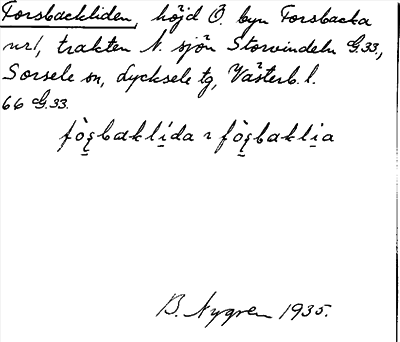 Forsbackliden, höjd Ö. byn Forsbacka
nr1, trakten N. sjön Storvindeln G.33,
Sorsele sn, Lycksele tg, Västerb. l.
66 G.33.
B. Nygren 1935.